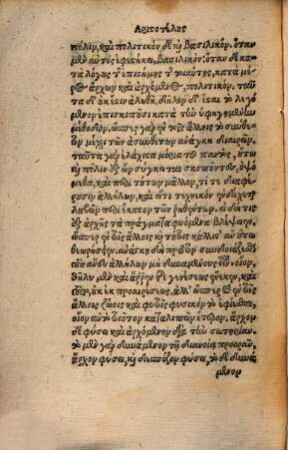 Αριστοτέλους
πόλιν, καὶ πολιτικὸν δὲ καὶ βασιλικόν. ὅταν
μὲν αὐτὸς ἐφεστήκῃ, βασιλικόν· ὅταν δὲ κα
τὰ λόγους τῆς ἐπιστήμης τῆς τοιαύτης, κατὰ μέ
ρος ἄρχων καὶ ἀρχόμενος, πολιτικόν. ταῦ
τα δ' οὐκ ἔστιν ἀληθῆ. δῆλον δ' ἔσται τὸ λεγό
μενον ἐπισκοποῦσι κατὰ τὴν ὑφηγημένην
μέθοδον. ὥσπερ γὰρ ἐν τοῖς ἄλλοις τὸ σύνθε
τον μέχρι τῶν ἀσυνθέτων ἀνάγκη διαιρεῖν,
ταῦτα γὰρ ἐλάχιστα μόρια τοῦ παντός, οὕτω
καὶ πόλιν ἐξ ὧν σύγκειται σκοποῦντες, ὀψό
μεθα καὶ περὶ τούτων μᾶλλον, τί τε διαφέ
ρουσιν ἀλλήλων, καὶ εἴ τι τεχνικὸν ἐνδέχεται
λαβεῖν περὶ ἕκαστον τῶν ῥηθέντων. εἰ δή τις
ἐξ ἀρχῆς τὰ πράγματα φυόμενα βλέψειεν,
ὥσπερ ἐν τοῖς ἄλλοις καὶ ἐν τούτοις κάλλιστ' ἂν οὕτω
θεωρήσειεν. ἀνάγκη δὴ πρῶτον συνδυάζεσθαι
τοὺς ἄνευ ἀλλήλων μὴ δυναμένους εἶναι, οἷον,
θῆλυ μὲν καὶ ἄρρεν τῆς γενέσεως ἕνεκεν, καὶ
τοῦτο, οὐκ ἐκ προαιρέσεως, ἀλλ' ὥσπερ καὶ ἐν τοῖς
ἄλλοις ζώοις καὶ φυτοῖς φυσικὸν τὸ ἐφίεσθαι,
οἷον αὐτὸ τοιοῦτον καταλιπεῖν ἕτερον. ἄρχον
δὲ φύσει καὶ ἀρχόμενον διὰ τὴν σωτηρίαν.
τὸ μὲν γὰρ δυνάμενον τῇ διανοίᾳ προορᾶν,
ἄρχον φύσει, καὶ δεσπόζον φύσει, τὸ δὲ δυνά
μενον